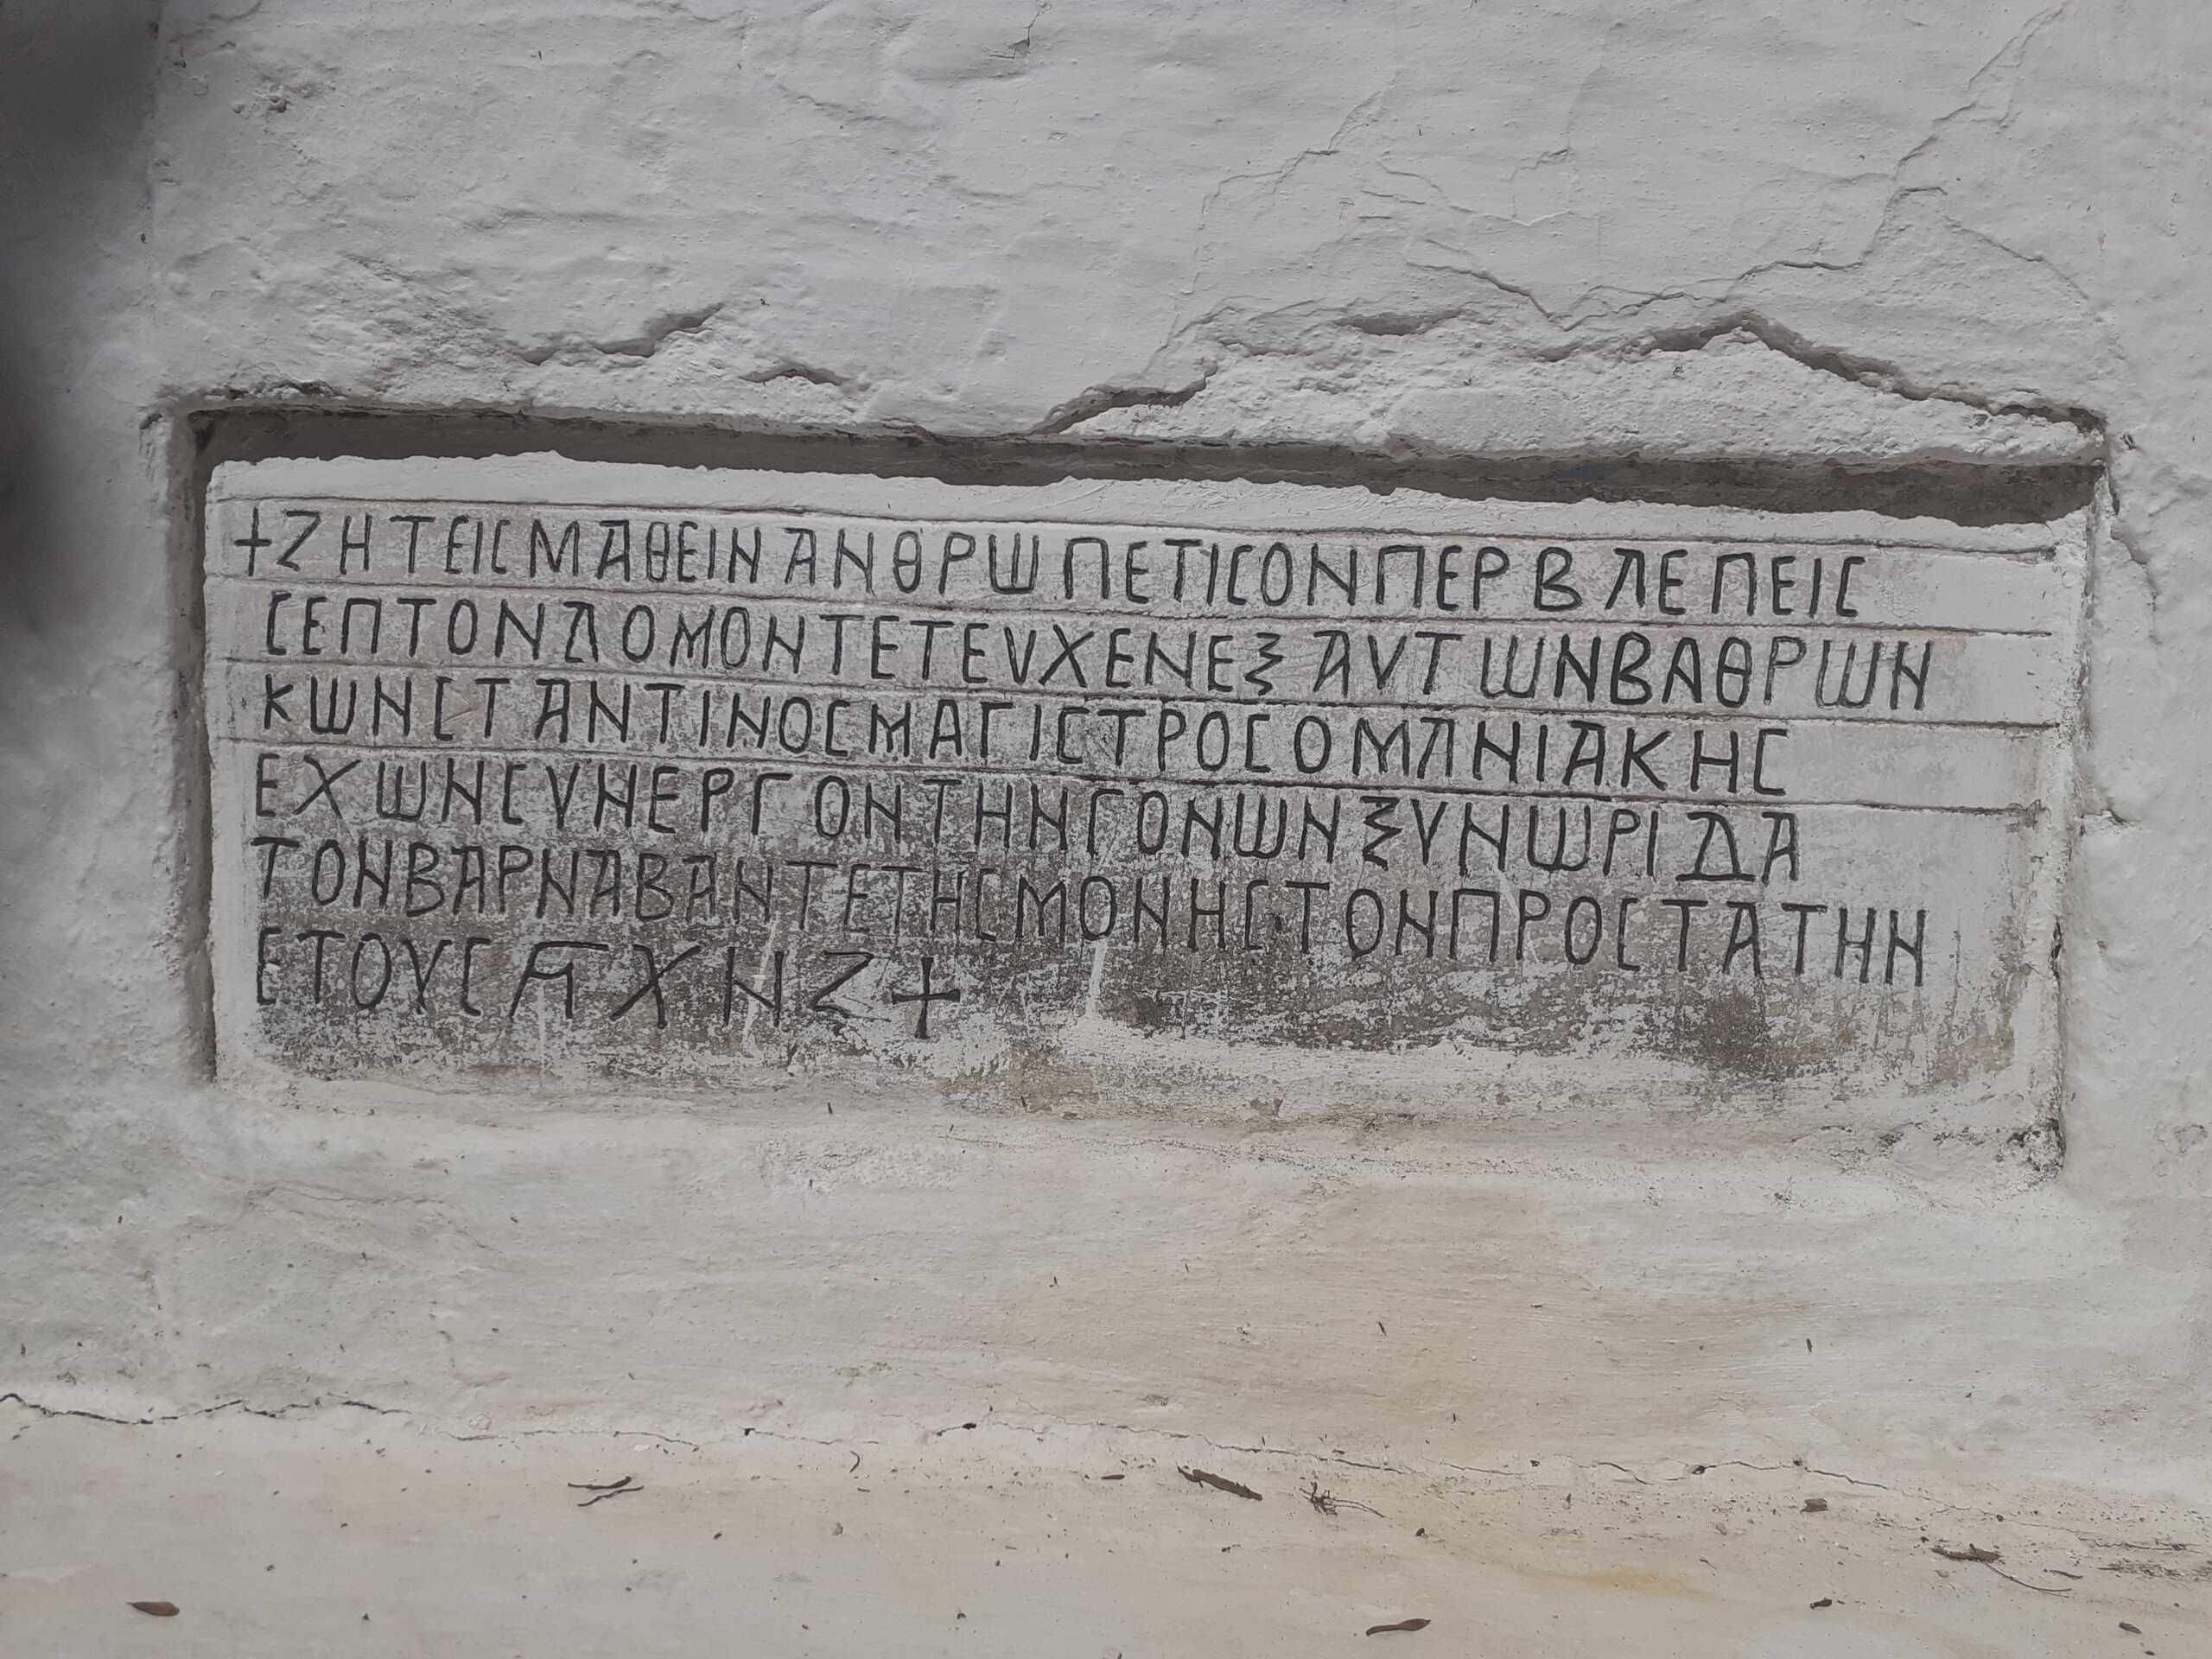 +ΖΗΤΕΙCΜΑΘΕΙΝΑΝΘΡΩΠΕΤΙCΟΝΠΕΡΒΛΕΠΕΙC
CΕΠΤΟΝΔΟΜΟΝΤΕΤΕΥΧΕΝΕΞΑΥΤΩΝΒΑΘΡΩΝ
ΚΩΝCΤΑΝΤΙΝΟCΜΑΓΙCΤΡΟCΟΜΑΝΙΑΚΗC
ΕΧΩΝCΥΝΕΡΓΟΝΤΗΝΓΟΝΩΝΞΥΝΩΡΙΔΑ
ΤΟΝΒΑΡΝΑΒΑΝΤΕΤΗCΜΟΝΗCΤΟΝΠΡΟCΤΑΤΗΝ
ΕΤΟΥCΑΧΝΖ+